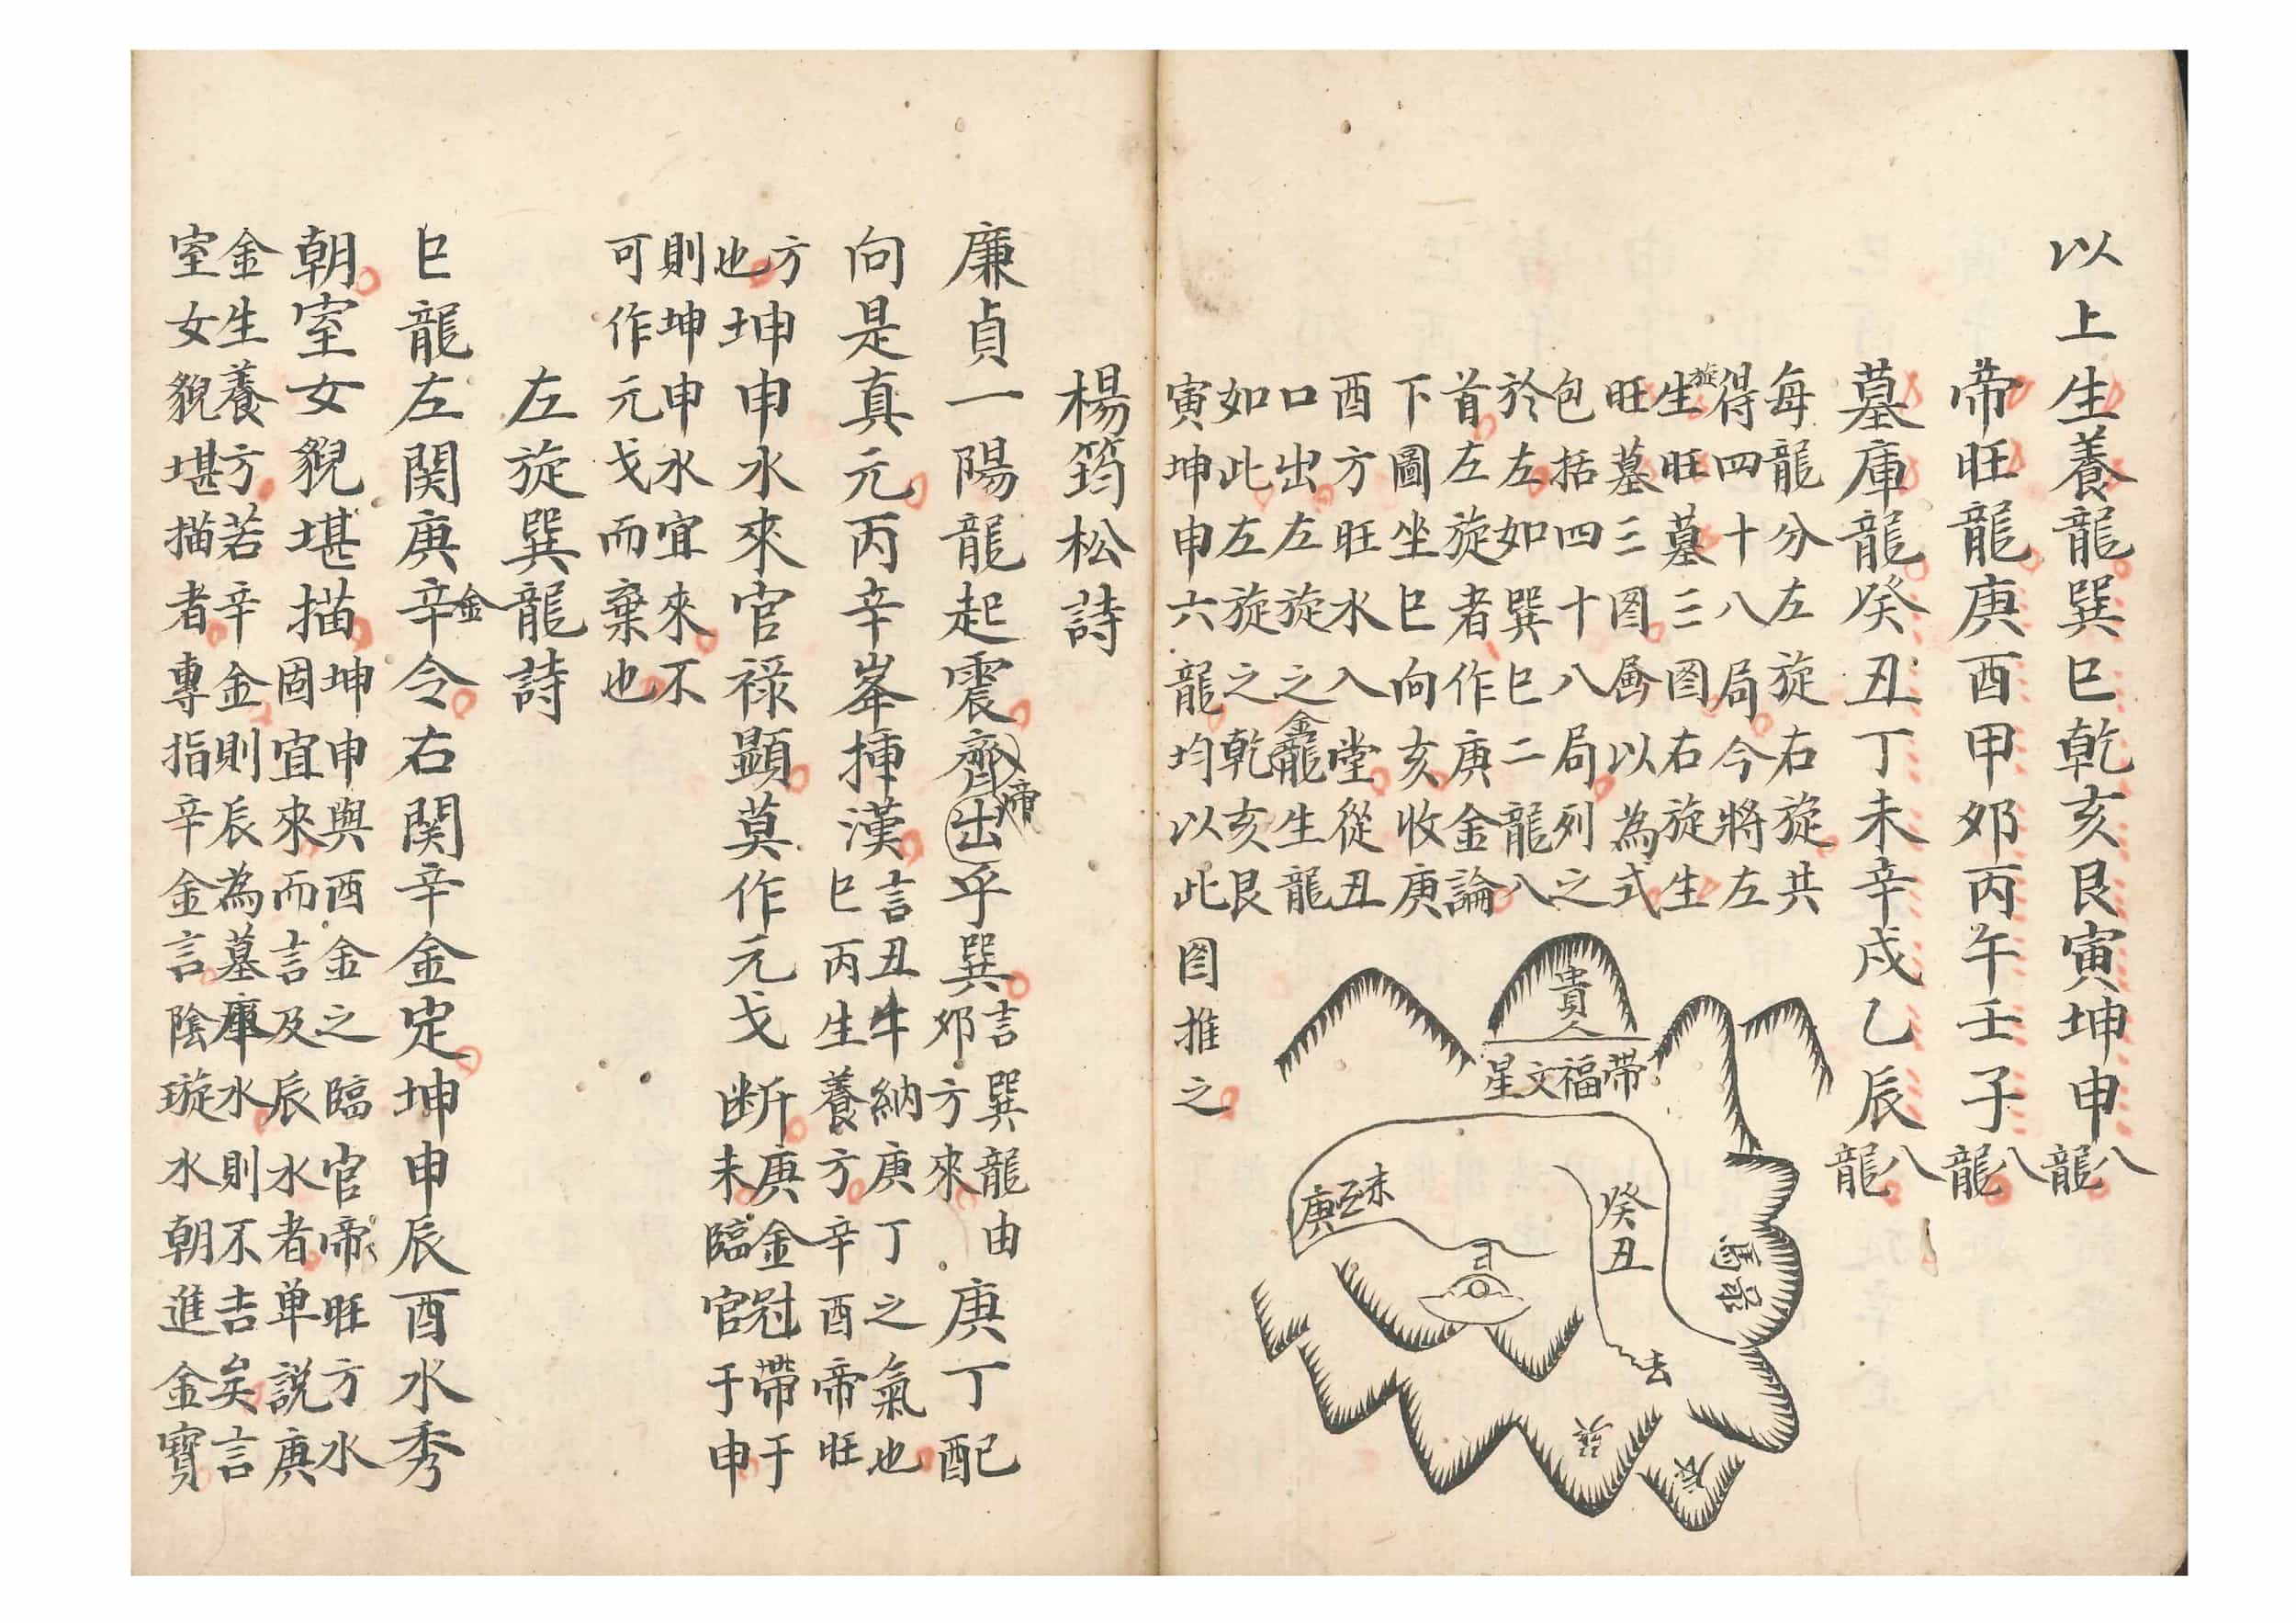 以上生養龍巽巳乾亥艮寅坤申八龍
帝旺龍庚酉甲卯丙午壬子八龍
墓庫龍癸丑丁未辛戌乙辰八龍
每龍分左旋右旋共
得四十八局今將左
旋生旺墓三图右旋生
旺墓三图畧以為式
包括四十八局列之
於左如巽巳二龍八
首左旋者作庚金論
下圖坐巳向亥收庚
酉方旺水入堂從丑
口出左旋之金龍生龍
如此左旋之乾亥艮
寅坤申六龍均以此图推之
貴人
帶福文星
癸丑
未
庚
去
巽
辰
楊筠松詩
廉貞一陽龍起震齊出乎巽言巽龍由卯方來庚丁配
向是真元丙辛峯揷漢言丑牛納庚丁之氣也巳丙生養方辛酉帝旺
方也坤申水來官禄顯莫作元戈断庚金冠帶于未臨官于申
則坤申水宜來不
可作元戈而棄也
左旋巽龍詩
巳龍左関庚辛金令右関辛金定坤申辰酉水秀
朝室女貎堪描坤申與酉金之臨官帝旺方水固宜來而言及辰水者单説庚
金生養方若辛金則辰為墓庫水則不吉矣言
室女貎堪描者專指辛金言陰璇水朝進金寳